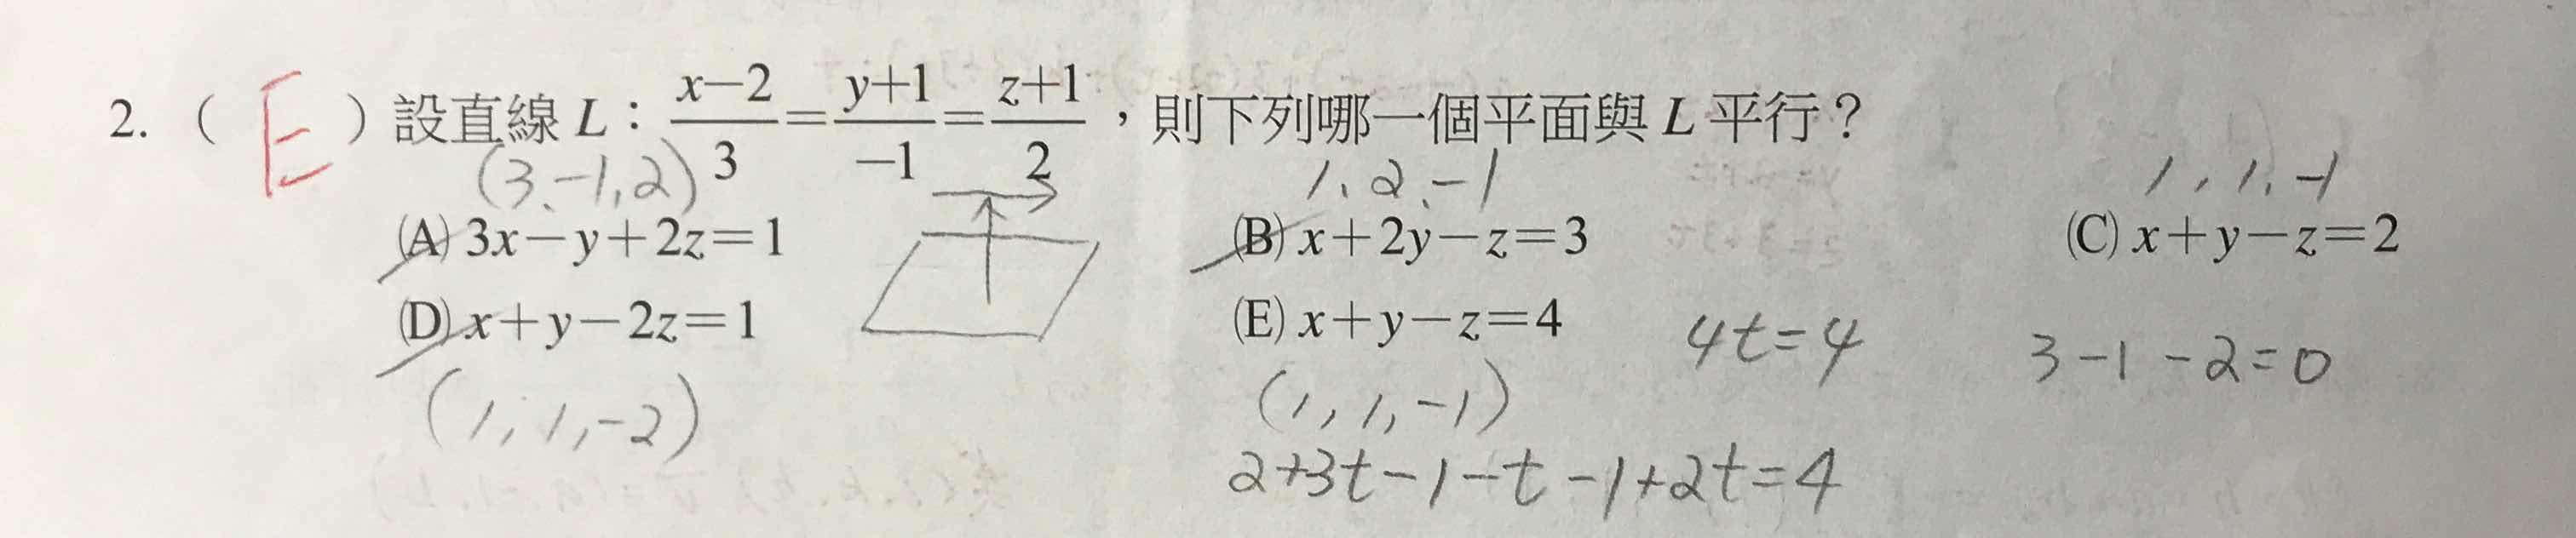 2. ( E ) 設直線 L：(x−2)/3=(y+1)/−1=(z+1)/2，則下列哪一個平面與 L 平行？
(3、−1,2)
1、2、−1
1,1,−1
(A) 3x−y+2z=1 (B) x+2y−z=3 (C) x+y−z=2
(D) x+y−2z=1 (E) x+y−z=4
4t=4
3−1−2=0
(1,1,−2)
(1,1,−1)
2+3t−1−t−1+2t=4